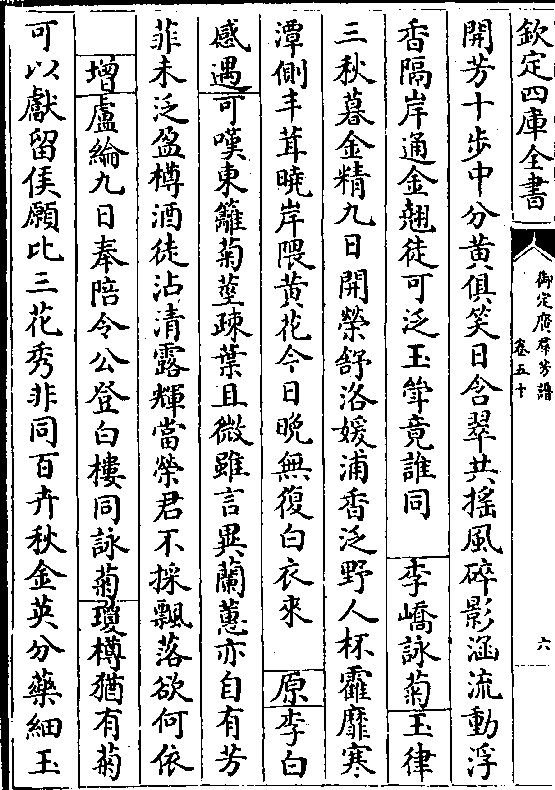 欽定四庫全書
御定廣羣芳譜
卷五十
六
開芳十步中分黄俱笑日含翠共揺風碎影涵流動浮
香隔岸通金翹徒可泛玉斝竟誰同 李嶠詠菊玉律
三秋暮金精九日開榮舒洛媛浦香泛野人杯霍靡寒
潭側丰茸曉岸隈黄花今日晚無復白衣來 原李白
感遇可嘆東籬菊莖疎葉且微雖言異蘭蕙亦自有芳
菲未泛盈樽酒徒沾清露輝當榮君不採飄落欲何依
增盧綸九日奉陪令公登白樓同詠菊瓊樽猶有菊
可以獻留侯願比三花秀非同百卉秋金英分蘂細玉